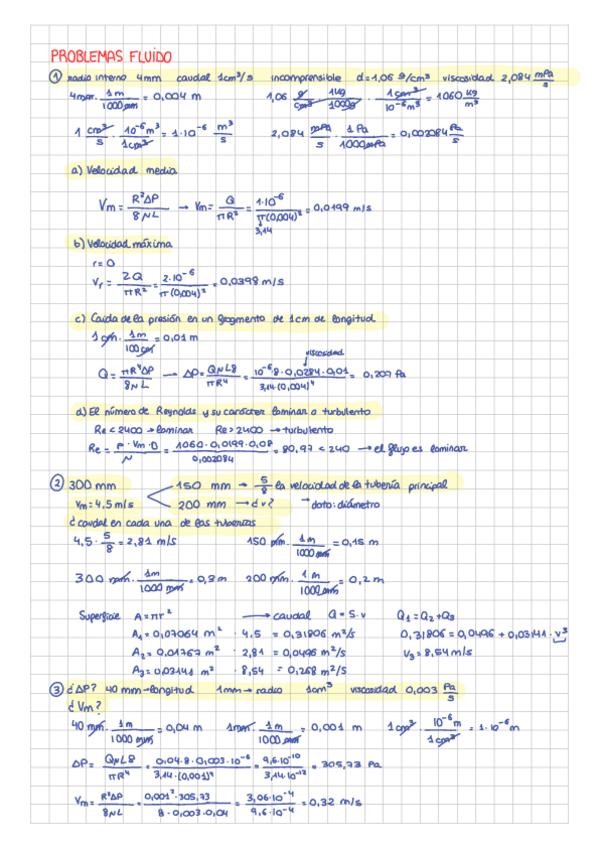 PROBLEMAS FLUÍDO
① radio interno 4mm caudal 1cm³/s incomprensible d=1,06 g/cm³ viscosidad 2,084 mPa/s
4mm · 1m/1000mm = 0,004 m 1,06 g/cm³ · 1kg/1000g · 1cm³/10⁻⁶m³ = 1060 kg/m³
1 cm³/s · 10⁻⁶m³/1cm³ = 1·10⁻⁶ m³/s 2,084 mPa/s · 1Pa/1000mPa = 0,002084 Pa/s
a) Velocidad media
Vm = R²ΔP/8ηL → Vm = Q/πR² = 1·10⁻⁶/π(0,004)² = 0,0199 m/s
3,14
b) Velocidad máxima
r=0
Vr = 2Q/πR² = 2·10⁻⁶/π(0,004)² = 0,0398 m/s
c) Caída de la presión en un fragmento de 1cm de longitud
1cm · 1m/100cm = 0,01 m
viscosidad
Q = πR⁴ΔP/8ηL → ΔP = QηL8/πR⁴ = 10⁻⁶·8·0,0284·0,01/3,14(0,004)⁴ = 0,207 Pa
d) El número de Reynolds y su carácter laminar o turbulento
Re < 2400 → laminar Re > 2400 → turbulento
Re = ρ·Vm·D/η = 1060·0,0199·0,08/0,002084 = 80,97 < 240 → el flujo es laminar
② 300 mm 150 mm → 5/8 la velocidad de la tubería principal
Vm = 4,5 m/s 200 mm → ¿v? → dato: diámetro
¿caudal en cada una de las tuberías
4,5 · 5/8 = 2,81 m/s 150 mm · 1m/1000mm = 0,15 m
300 mm · 1m/1000mm = 0,3m 200 mm · 1m/1000mm = 0,2 m
Superficie A=πr² → caudal Q = S·v Q₁ = Q₂+Q₃
A₁ = 0,07064 m² · 4,5 = 0,31806 m²/s 0,31806 = 0,0496 + 0,03141 · v³
A₂ = 0,01767 m² · 2,81 = 0,0496 m²/s V₃ = 8,54 m/s
A₃ = 0,03141 m² · 8,54 = 0,268 m²/s
③ ¿ΔP? 40 mm→longitud 1mm→radio 1cm³ viscosidad 0,003 Pa/s
¿Vm?
40 mm · 1m/1000mm = 0,04 m 1mm · 1m/1000mm = 0,001 m 1cm³ · 10⁻⁶m/1cm³ = 1·10⁻⁶m
ΔP = QηL8/πR⁴ = 0,04·8·0,003·10⁻⁶/3,14·(0,001)⁴ = 9,6·10⁻¹⁰/3,14·10⁻¹² = 305,73 Pa
Vm = R²ΔP/8ηL = 0,001²·305,73/8·0,003·0,04 = 3,06·10⁻⁴/9,6·10⁻⁴ = 0,32 m/s